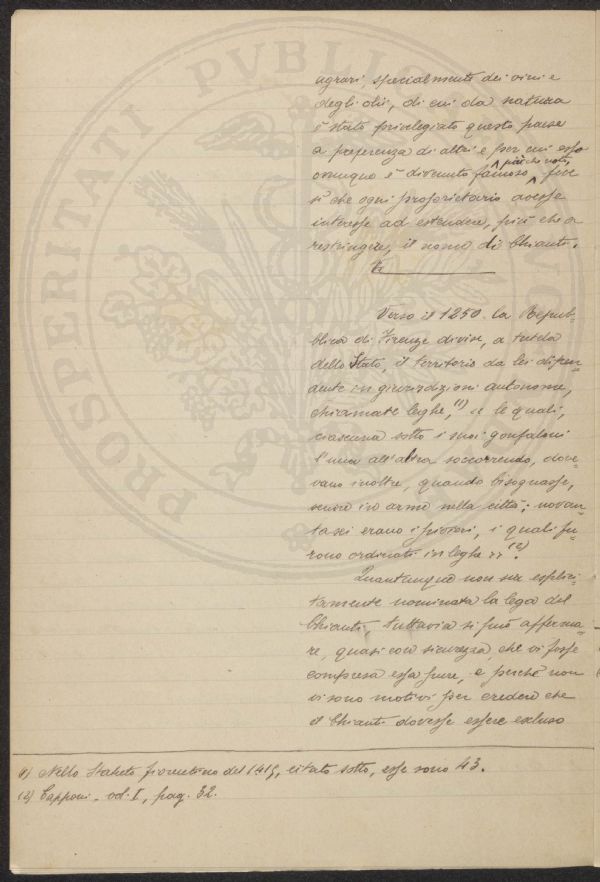 agrari, specialmente dei vini e
degli olii, di cui da natura
è stato privilegiato questo paese
a preferenza di altri e per cui esso
ovunque è divenuto famoso, fece
più che noto,
sì che ogni proprietario avesse
interesse ad estendere, più che a
restringere, il nome di Chianti.
Verso il 1250 la Repub-
blica di Firenze divise, a tutela
dello Stato, il territorio da lei dipen-
dente in giurisdizioni autonome,
chiamate leghe, (1) « le quali,
ciascuna sotto i suoi gonfaloni
l'una all'altra soccorrendo, dove-
vano inoltre, quando bisognasse,
venire in arme nella città; novan-
tasei erano i pivieri, i quali fu-
rono ordinati in leghe » (2).
Quantunque non sia esplici-
tamente nominata la lega del
Chianti, tuttavia si può afferma-
re, quasi con sicurezza che vi fosse
compresa essa pure, e perché non
vi sono motivi per credere che
il Chianti dovesse essere escluso
(1) Nello Statuto fiorentino del 1415, citato sotto, esse sono 43.
(2) Capponi - vol. I, pag. 32.
PROSPERITATI PVBLI